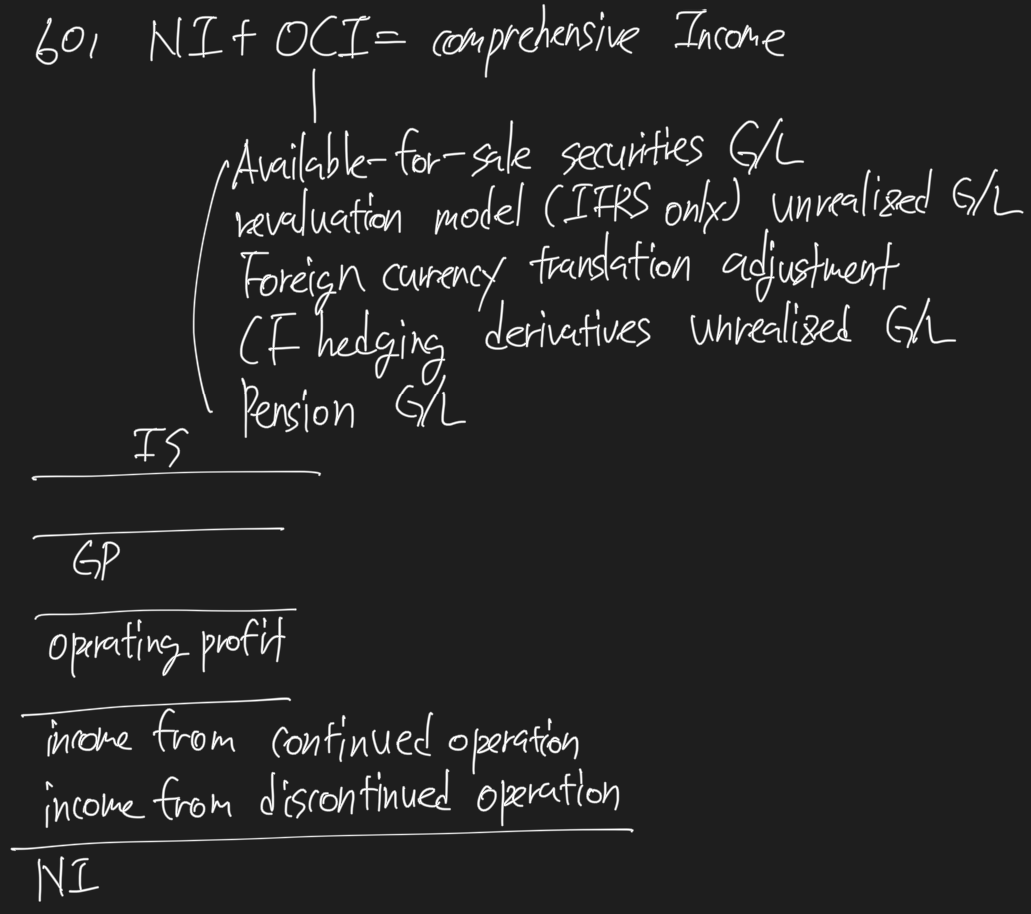 601 NI + OCI = comprehensive Income
Available-for-sale securities G/L
revaluation model (IFRS only) unrealized G/L
Foreign currency translation adjustment
CF hedging derivatives unrealized G/L
Pension G/L
IS
GP
operating profit
income from continued operation
income from discontinued operation
NI